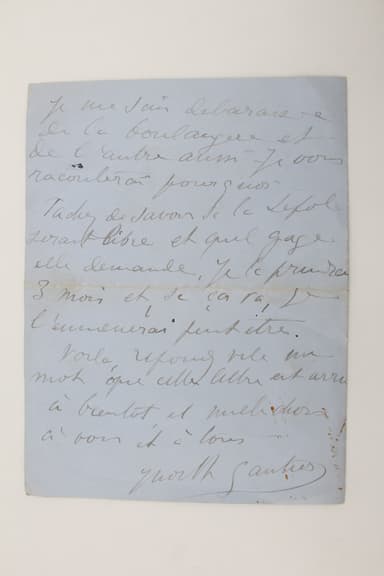 Je me suis debarassée
de la boulangere et
de l'autre aussi. Je vous
raconterai pourquoi
Tachez de savoir si la
serait libre et quel gage
elle demande, je la prendrai
3 mois et si ça va, je
l'emmènerai peut être.
Voilà repondez vite un
mot que cette lettre est arri
à bientot et mille choses
à vous et à tous
Judith Gautier